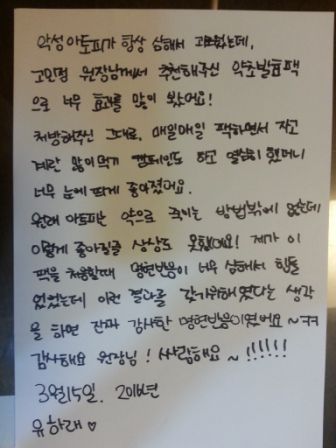 악성 아토피가 항상 심해서 괴로웠는데,
고민정 원장님께서 추천해주신 약초발효팩
으로 너무 효과를 많이 봤어요!
처방해주신 그대로, 매일매일 팩하면서 자고
계란 많이먹기 캠페인도 하고 열심히 했더니
너무 눈에 띄게 좋아졌어요.
원래 아토피는 약으로 죽이는 방법밖에 없는데
이렇게 좋아질줄 상상도 못했어요! 제가 이
팩을 처음할때 명현반응이 너무 심해서 힘들
었었는데 이런 결과를 갖기위해였다는 생각
을 하면 잔짜 감사한 명현반응이였어요 ~ ㅋㅋ
감사해요 원장님! 싸랑해요 ~ !!!!!!
3월15일. 2016년
유하래 ♡